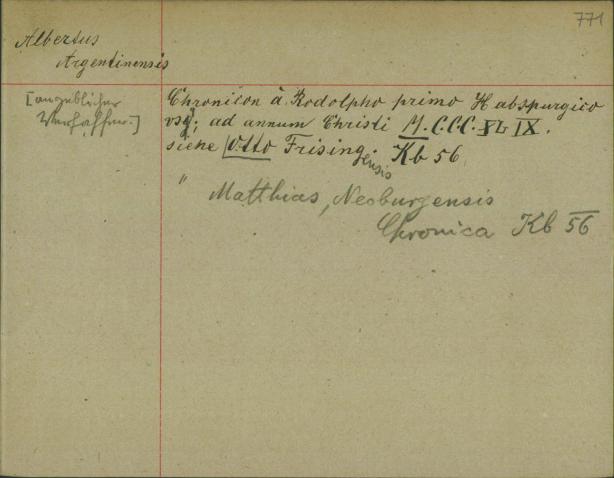 771
Albertus
Argentinensis
[angeblicher
Verfasser.]
Chronicon à Rodolpho primo Habspurgico
vsq; ad annum Christi M.C.C.C.XLIX.
siehe Otto Frisingensis. Kb 56.
" Matthias, Neoburgensis
Chronica Kb 56